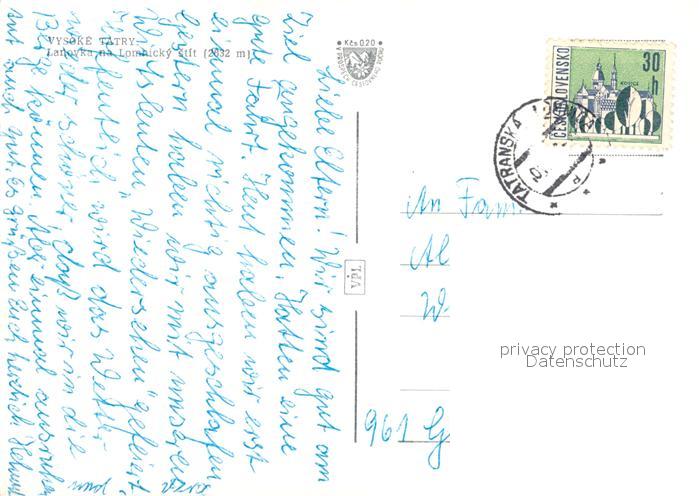 VYSOKÉ TATRY
Lanovka na Lomnický štít (2632 m)
Kčs 0,20
VPL
ČESKOSLOVENSKO
30 h
KOŠICE
TATRANSKÁ
An Fam.
Al
W
961 G
privacy protection
Datenschutz
Liebe Eltern! Wir sind gut am
Ziel angekommen. Hatten eine
gute Fahrt. Heut haben wir erst
einmal richtig ausgeschlafen
Gestern haben wir mit unseren
Wiedersehen gefeiert.
Hoffentlich wird das Wetter
schöner daß wir in die
Berge können. Aber einmal ausruhen
tut auch gut. Es grüßen Euch herzlich Helmut